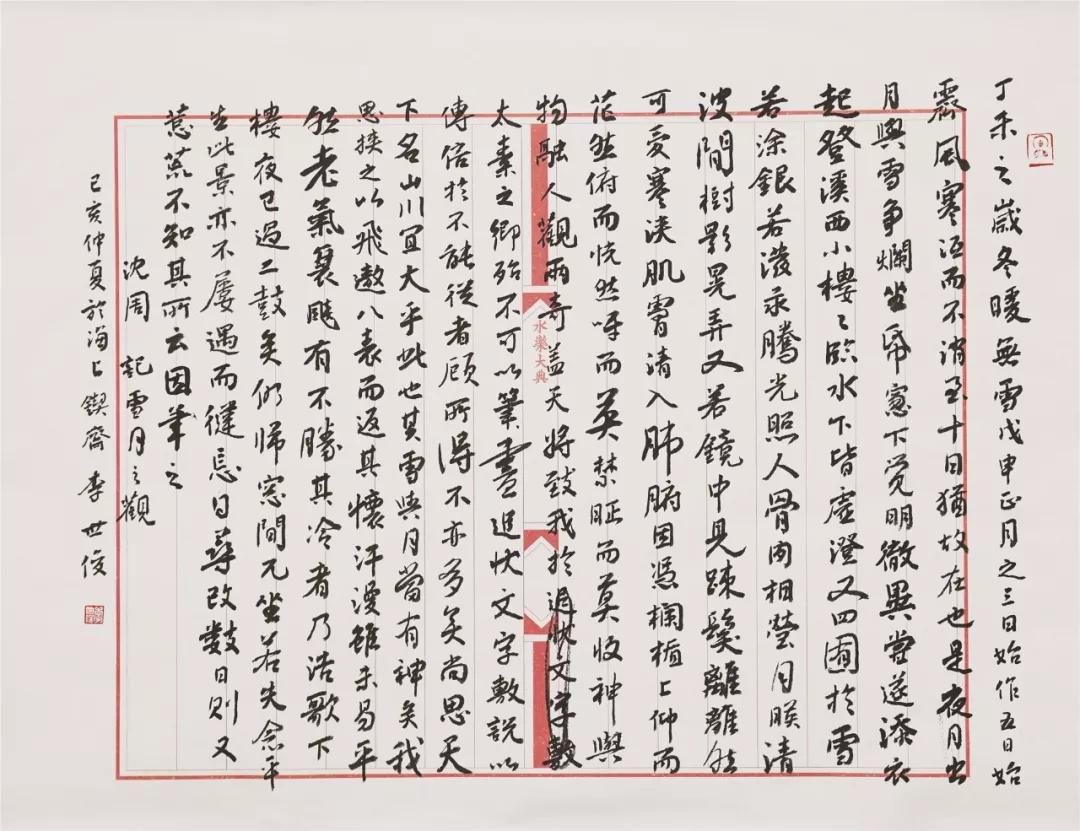 丁未之歲冬暖無雪戊申正月之三日始作五日始
霽風寒沍而不消至十日猶故在也是夜月出
月與雪爭爛坐帋窻下覺明徹異嘗遂添衣
起登溪西小樓〻臨水下皆虛澄又四囿於雪
若涂銀若潑汞騰光照人骨肉相瑩月映清
波間樹影晃弄又若鏡中見疎鬢離離然
可愛寒浹肌膚清入肺腑因憑欄楯上仰而
茫然俯而恍然呀而英禁眶而莫收神與
物融人觀兩奇蓋天將致我於追狀文字敷
太素之鄉殆不可以筆畫追狀文字敷說以
傳信於不能從者顧所得不亦多矣尚思天
下名山川宜大乎此也其雪與月當有神矣我
思挾之以飛遨八表而返其懷汗漫雖未易平
然老氣衰颯有不勝其冷者乃浩歌下
樓夜已過二鼓矣仍歸窓間兀坐若失念平
生此景亦不屢遇而健忘日尋改數日則又
荒不知其所云因筆之
沈周 記雪月之觀
己亥仲夏於海上鍥齋 李世俊
永樂大典